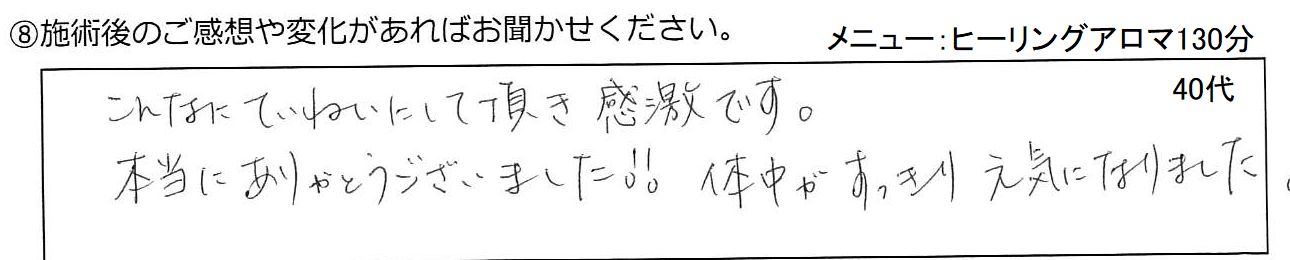 ⑧施術後のご感想や変化があればお聞かせください。
メニュー：ヒーリングアロマ130分
40代
こんなにていねいにして頂き 感激です。
本当にありがとうございました!! 体中がすっきり 元気になりました。